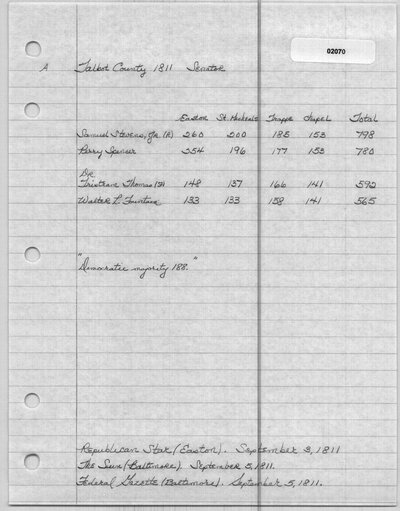 02070
A Talbot County 1811 Senator
Easton St. Michaels Trappe Chapel Total
Samuel Stevens, Jr. (R) 260 200 185 153 798
Perry Spencer 254 196 177 153 780
Dr.
Tristram Thomas (F) 148 137 166 141 592
Walter L. Fountain 133 133 158 141 565
"Democratic majority 188."
Republican Star (Easton). September 3, 1811
The Sun (Baltimore). September 5, 1811.
Federal Gazette (Baltimore). September 5, 1811.